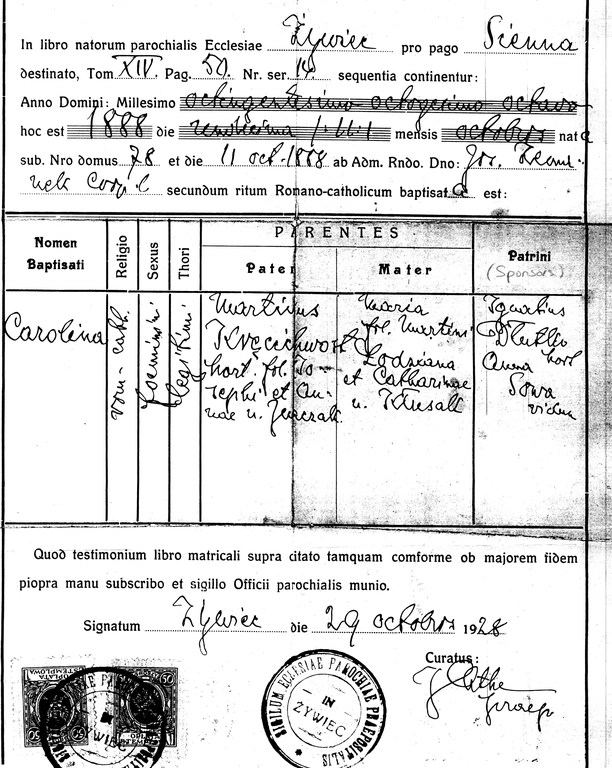 In libro natorum parochialis Ecclesiae Żywiec pro pago Sienna
destinato, Tom XIV. Pag. 50. Nr. ser. 14. sequentia continentur:
Anno Domini: Millesimo octingentesimo octogesimo octavo
hoc est 1888 die mensis octobris nat a
sub. Nro domus 78 et die 11 oct. 1888 ab Adm. Rndo. Dno: Jos.
secundum ritum Romano-catholicum baptisat a est:
Nomen Baptisati
Religio
Sexus
Thori
PARENTES
Pater
Mater
Patrini
(Sponsors)
Carolina
rom-cath.
foeminini
legitimi
Martinus
hort. fil. Jo-
sephi et An-
nae n.
Maria
fil. Martini
Lodziana
et Catharinae
n. Klusak
Ignatius
hort
Anna
Sowa
vidua
Quod testimonium libro matricali supra citato tamquam comforme ob majorem fidem
piopra manu subscribo et sigillo Officii parochialis munio.
Signatum Żywiec die 29 octobris 1928
Curatus:
SIGILUM ECLESIAE PAROCHIAE PRAEPOSITALIS
IN
ŻYWIEC
OPŁATA
STEMPLOWA
50
50